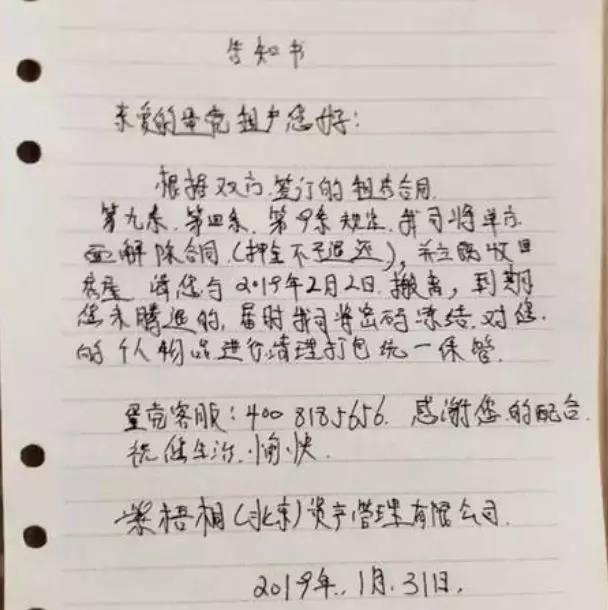 告知书
亲爱的蛋壳租户您好:
根据双方签订的租房合同.
第九条.第四条.第9条规定.我司将单方
面解除合同.(押金不予退还),并立即收回
房屋 请您与2019年2月2日.搬离,到期
您未腾退的,届时我司将密码冻结.对您.
的个人物品进行清理打包统一保管.
蛋壳客服:400 8185656. 感谢您的配合.
祝您生活.愉快.
紫梧桐(北京)资产管理有限公司.
2019年.1月.31日.